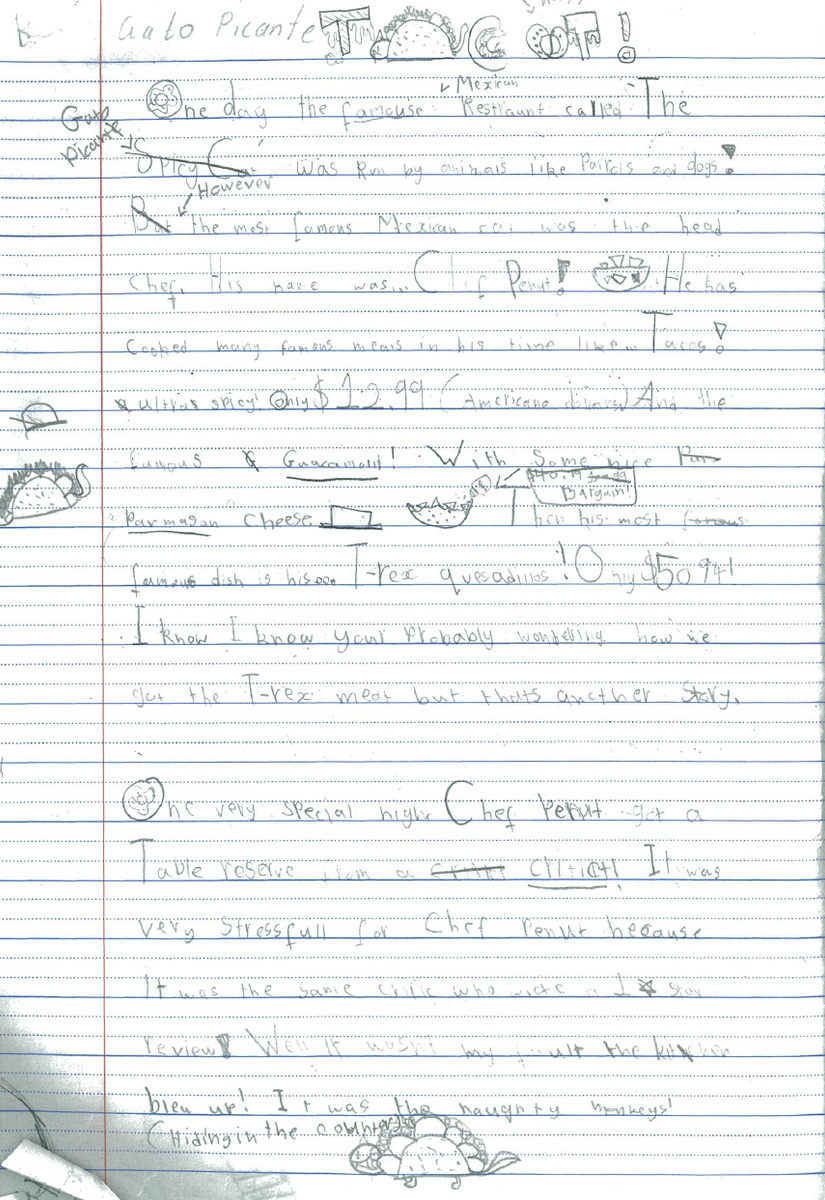 Gato Picante TACO CAT!
One day the famouse Mexican Restraunt called The
Gato Picante
Spicy Cat was Run by animals like Parrots and dogs!
However
But the most famous Mexican cat was the head
Chef. His name was... Chef Penut! He has
Cooked many famous meals in his time like... Tacos!
ultra spicy! Only $12.99 (Americano dollars) And the
famous & Guacamole! With Some nice Par
Bargain!
Parmasan cheese Then his most famous
famous dish is his... T-rex quesadillos! Only $50.94!
I know I know your Probably wondering how we
got the T-rex meat but thats another Story.
One very special night Chef Penut got a
Table reserve from a critic critict! It was
very Stressfull for Chef Penut because
It was the same critic who wrote a 1 star
review! Well it wasn't my fault the kitchen
bleu up! It was the naughty monkeys!
(Hiding in the counter)